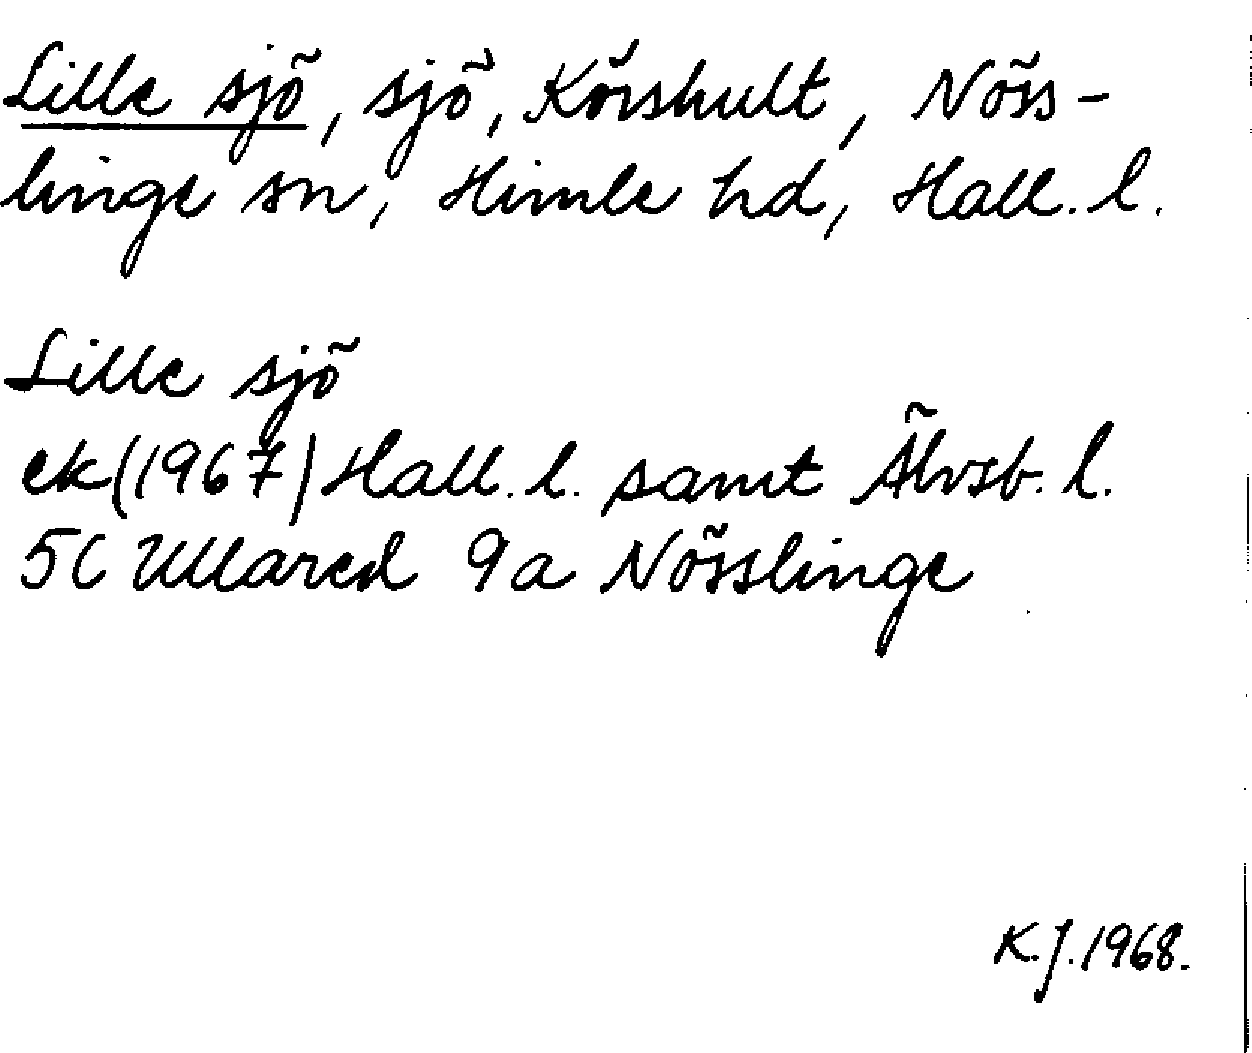 Lille sjö, sjö, Körshult, Nöss-
linge sn, Himle hd, Hall. l.
Lille sjö
ek(1967)Hall. l. samt Älvsb. l.
5C Ullared 9a Nösslinge
K.J.1968.